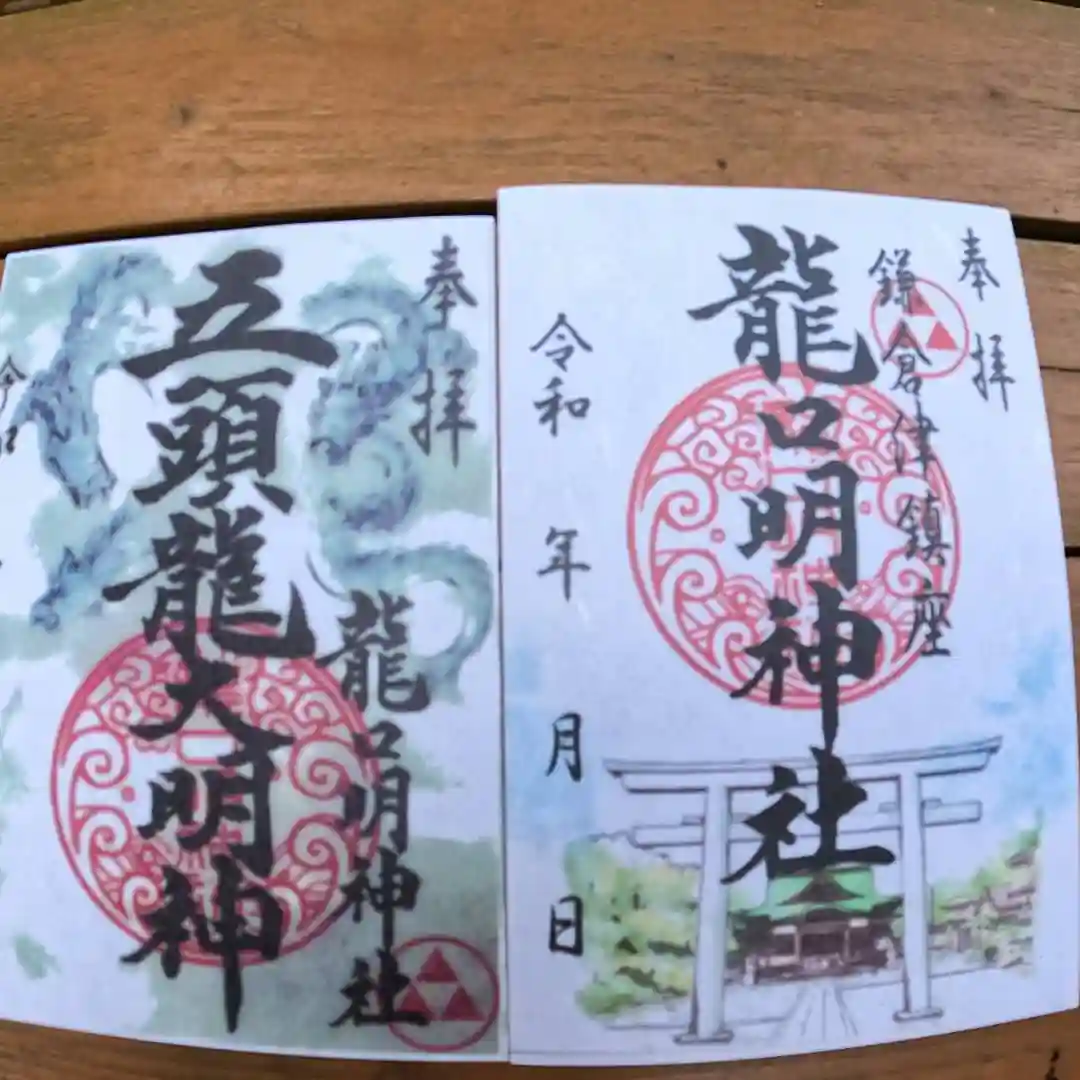 奉拝
鎌倉津鎮座
龍口明神社
令和 年 月 日
奉拝
龍口明神社
五頭龍大明神
令和